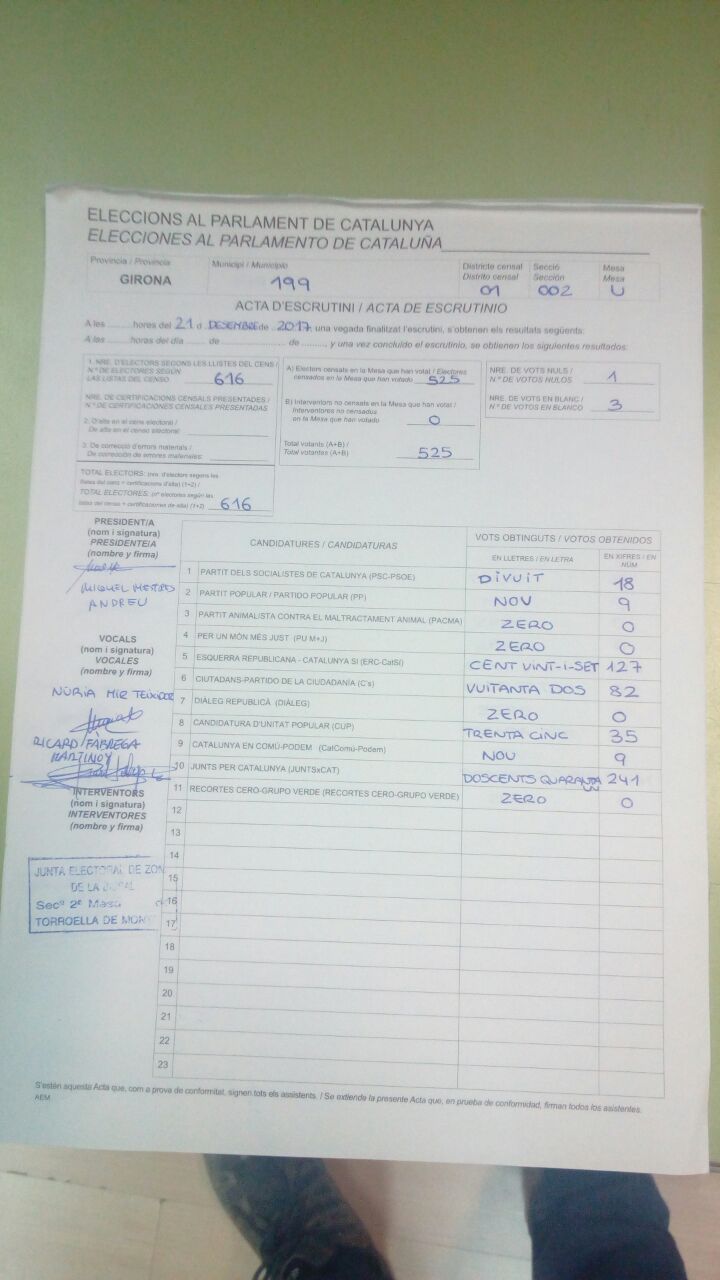 ELECCIONS AL PARLAMENT DE CATALUNYA
ELECCIONES AL PARLAMENTO DE CATALUÑA
Provincia / Provincia
Municipi / Municipio
Districte censal
Distrito censal
Secció
Sección
Mesa
Mesa
GIRONA
199
01
002
U
ACTA D'ESCRUTINI / ACTA DE ESCRUTINIO
A les ........ hores del 21 d. DESEMBRE de 2017, una vegada finalitzat l'escrutini, s'obtenen els resultats següents:
A las ........ horas del día ........ de ........ de ........, y una vez concluido el escrutinio, se obtienen los siguientes resultados:
1. NRE. D'ELECTORS SEGONS LES LLISTES DEL CENS /
N.º DE ELECTORES SEGÚN
LAS LISTAS DEL CENSO 616
NRE. DE CERTIFICACIONS CENSALS PRESENTADES /
N.º DE CERTIFICACIONES CENSALES PRESENTADAS
2. D'alta en el cens electoral /
De alta en el censo electoral:
3. De correcció d'errors materials /
De corrección de errores materiales:
TOTAL ELECTORS: (nre. d'electors segons les
llistes del cens + certificacions d'alta) (1+2) /
TOTAL ELECTORES: (nº electores según las
listas del censo + certificaciones de alta) (1+2) 616
A) Electors censats en la Mesa que han votat / Electores
censados en la Mesa que han votado 525
B) Interventors no censats en la Mesa que han votat /
Interventores no censados
en la Mesa que han votado 0
Total votants (A+B) /
Total votantes (A+B) 525
NRE. DE VOTS NULS /
N.º DE VOTOS NULOS 1
NRE. DE VOTS EN BLANC /
N.º DE VOTOS EN BLANCO 3
PRESIDENT/A
(nom i signatura)
PRESIDENTE/A
(nombre y firma)
MIQUEL MESTRES
ANDREU
VOCALS
(nom i signatura)
VOCALES
(nombre y firma)
NÚRIA MIR TEIXIDOR
RICARD FÀBREGA
MARTINOY
INTERVENTORS
(nom i signatura)
INTERVENTORES
(nombre y firma)
JUNTA ELECTORAL DE ZON
DE LA
Secº 2ª Mesa
TORROELLA DE MONT
CANDIDATURES / CANDIDATURAS
VOTS OBTINGUTS / VOTOS OBTENIDOS
EN LLETRES / EN LETRA
EN XIFRES / EN
NÚM
1 PARTIT DELS SOCIALISTES DE CATALUNYA (PSC-PSOE) DIVUIT 18
2 PARTIT POPULAR / PARTIDO POPULAR (PP) NOV 9
3 PARTIT ANIMALISTA CONTRA EL MALTRACTAMENT ANIMAL (PACMA) ZERO 0
4 PER UN MÓN MÉS JUST (PU M+J) ZERO 0
5 ESQUERRA REPUBLICANA - CATALUNYA SI (ERC-CatSI) CENT VINT-I-SET 127
6 CIUTADANS-PARTIDO DE LA CIUDADANÍA (C's) VUITANTA DOS 82
7 DIÀLEG REPUBLICÀ (DIÀLEG) ZERO 0
8 CANDIDATURA D'UNITAT POPULAR (CUP) TRENTA CINC 35
9 CATALUNYA EN COMÚ-PODEM (CatComú-Podem) NOU 9
10 JUNTS PER CATALUNYA (JUNTSxCAT) DOSCENTS QUARANTA UN 241
11 RECORTES CERO-GRUPO VERDE (RECORTES CERO-GRUPO VERDE) ZERO 0
12
13
14
15
16
17
18
19
20
21
22
23
S'estén aquesta Acta que, com a prova de conformitat, signen tots els assistents. / Se extiende la presente Acta que, en prueba de conformidad, firman todos los asistentes.
AEM